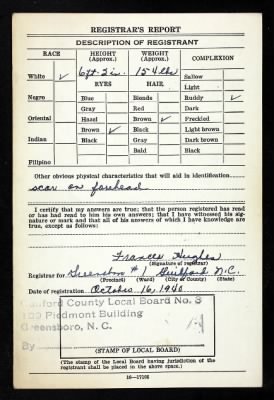 REGISTRAR'S REPORT
DESCRIPTION OF REGISTRANT
RACE HEIGHT (Approx.) WEIGHT (Approx.) COMPLEXION
White ✓ 6 ft. 2 in. 154 lbs Sallow
EYES HAIR Light
Negro Blue Blonde Ruddy ✓
Gray Red Dark
Oriental Hazel Brown ✓ Freckled
Brown ✓ Black Light brown
Indian Black Gray Dark brown
Bald Black
Filipino
Other obvious physical characteristics that will aid in identification
scar on forehead
I certify that my answers are true; that the person registered has read
or has had read to him his own answers; that I have witnessed his sig-
nature or mark and that all of his answers of which I have knowledge
are true, except as follows:
Frances Hughes
(Signature of registrar)
Registrar for Greensboro # 1 Guilford N.C.
(Precinct) (Ward) (City or County) (State)
Date of registration October 16, 1940
County Local Board No. 3
Piedmont Building
Greensboro, N. C.
By
(STAMP OF LOCAL BOARD)
(The stamp of the Local Board having jurisdiction of the
registrant shall be placed in the above space.)
16—17105